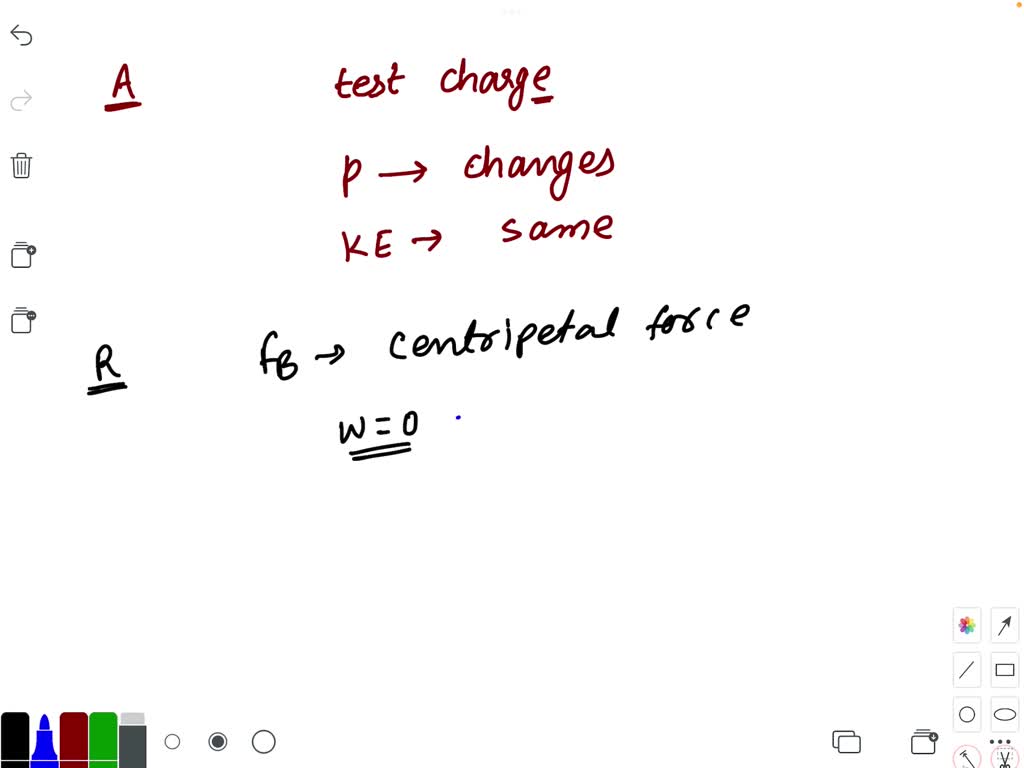 A test charge
p → changes
KE → same
R fB → centripetal force
W = 0